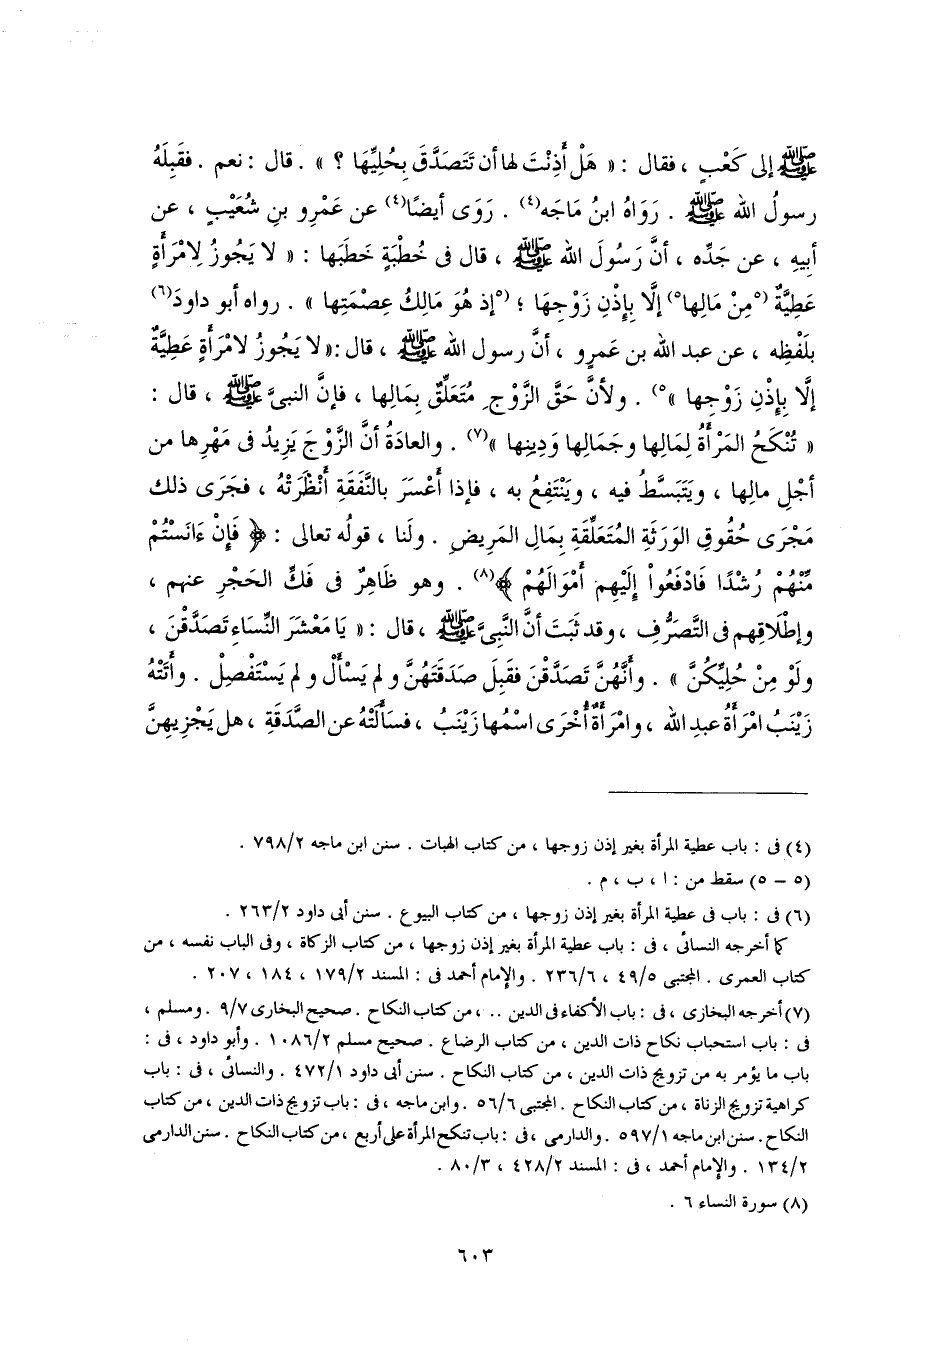 ﷺ إلى كَعْبٍ ، فقال : « هَلْ أَذِنْتَ لها أن تَتَصَدَّقَ بِحُلِيِّهَا ؟ » . قال : نعم . فقَبِلَهُ
رسولُ الله ﷺ . رَوَاهُ ابنُ مَاجَه(٤) . رَوَى أيضًا(٤) عن عَمْرِو بنِ شُعَيْبٍ ، عن
أبيهِ ، عن جَدِّه ، أنَّ رَسُولَ الله ﷺ ، قال فى خُطْبَةٍ خَطَبَها : « لا يَجُوزُ لِامْرَأَةٍ
عَطِيَّةٌ (٥مِنْ مَالِها٥) إلَّا بِإذْنِ زَوْجِهَا ؛ (٥إذ هُوَ مَالِكُ عِصْمَتِها » . رواه أبو داودَ(٦)
بلَفْظِه ، عن عبد الله بن عَمرو ، أنَّ رسول الله ﷺ ، قال :« لا يَجُوز لامْرَأةٍ عَطِيَّةٌ
إلَّا بِإِذْنِ زَوْجِها »٥) . ولأنَّ حَقَّ الزَّوْجِ مُتَعَلِّقٌ بِمَالِها ، فإنَّ النبىَّ ﷺ ، قال :
« تُنْكَحُ المَرْأَةُ لِمَالِها وجَمَالِها وَدِينِها »(٧) . والعادَةُ أنَّ الزَّوْجَ يَزِيدُ فى مَهْرِها من
أجْلِ مالِها ، ويَتَبَسَّطُ فيه ، ويَنْتَفِعُ به ، فإذا أَعْسَرَ بالنَّفَقَةِ أَنْظَرَتْهُ ، فجَرَى ذلك
مَجْرَى حُقُوقِ الوَرَثَةِ المُتَعَلِّقَةِ بِمَالِ المَرِيضِ . ولَنا ، قولُه تعالى : ﴿ فَإِنْ ءَانَسْتُمْ
مِّنْهُمْ رُشْدًا فَادْفَعُواْ إِلَيْهِم أَمْوَالَهُمْ ﴾(٨) . وهو ظَاهِرٌ فى فَكِّ الحَجْرِ عنهم ،
وإطْلَاقِهم فى التَّصَرُّفِ ، وقد ثَبَتَ أنَّ النَّبِىَّ ﷺ ، قال : « يَا مَعْشَرَ النِّسَاءِ تَصَدَّقْنَ ،
ولَوْ مِنْ حُلِيِّكُنَّ » . وأَنَّهُنَّ تَصَدَّقْنَ فقَبِلَ صَدَقَتَهُنَّ ولم يَسْأَلْ ولم يَسْتَفْصِلْ . وأَتَتْهُ
زَيْنَبُ امْرَأَةُ عبدِ الله ، وامْرَأَةٌ أُخْرَى اسْمُها زَيْنَبُ ، فسَأَلَتْهُ عن الصَّدَقَةِ ، هل يَجْزِيهِنَّ
(٤) فى : باب عطية المرأة بغير إذن زوجها ، من كتاب الهبات . سنن ابن ماجه ٢/٧٩٨ .
(٥ – ٥) سقط من : ا ، ب ، م .
(٦) فى : باب فى عطية المرأة بغير إذن زوجها ، من كتاب البيوع . سنن أبى داود ٢/٢٦٣ .
كما أخرجه النسائى ، فى : باب عطية المرأة بغير إذن زوجها ، من كتاب الزكاة ، وفى الباب نفسه ، من
كتاب العمرى . المجتبى ٥/٤٩ ، ٦/٢٣٦ . والإمام أحمد فى : المسند ٢/١٧٩ ، ١٨٤ ، ٢٠٧ .
(٧) أخرجه البخارى ، فى : باب الأكفاء فى الدين .. ، من كتاب النكاح . صحيح البخارى ٧/٩ . ومسلم ،
فى : باب استحباب نكاح ذات الدين ، من كتاب الرضاع . صحيح مسلم ٢/١٠٨٦ . وأبو داود ، فى :
باب ما يؤمر به من تزويج ذات الدين ، من كتاب النكاح . سنن أبى داود ١/٤٧٢ . والنسائى ، فى : باب
كراهية تزويج الزناة ، من كتاب النكاح . المجتبى ٦/٥٦ . وابن ماجه ، فى : باب تزويج ذات الدين ، من كتاب
النكاح . سنن ابن ماجه ١/٥٩٧ . والدارمى ، فى : باب تنكح المرأة على أربع ، من كتاب النكاح . سنن الدارمى
٢/١٣٤ . والإمام أحمد ، فى : المسند ٢/٤٢٨ ، ٣/٨٠ .
(٨) سورة النساء ٦ .
٦٠٣